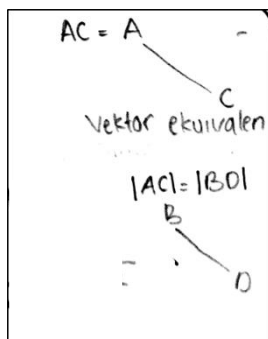 AC = A
C
Vektor ekuivalen
|AC| = |BD|
B
D